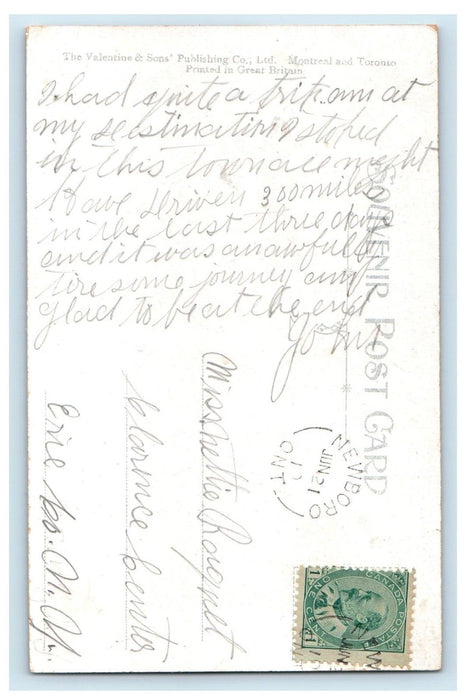 The Valentine & Sons' Publishing Co., Ltd. Montreal and Toronto
Printed in Great Britain
I had quite a trip. am at
my destination I stoped
in this town ace night
Have driven 300 miles
in the last three days
and it was an awfull
tire some journey am
glad to be at the end
John
SOUVENIR POST CARD
Miss Nettie Rayquet
Clarence Center
Erie Co. N. Y.
NEWBORO
JUN 21
10
ONT.
CANADA POSTAGE
ONE CENT
1